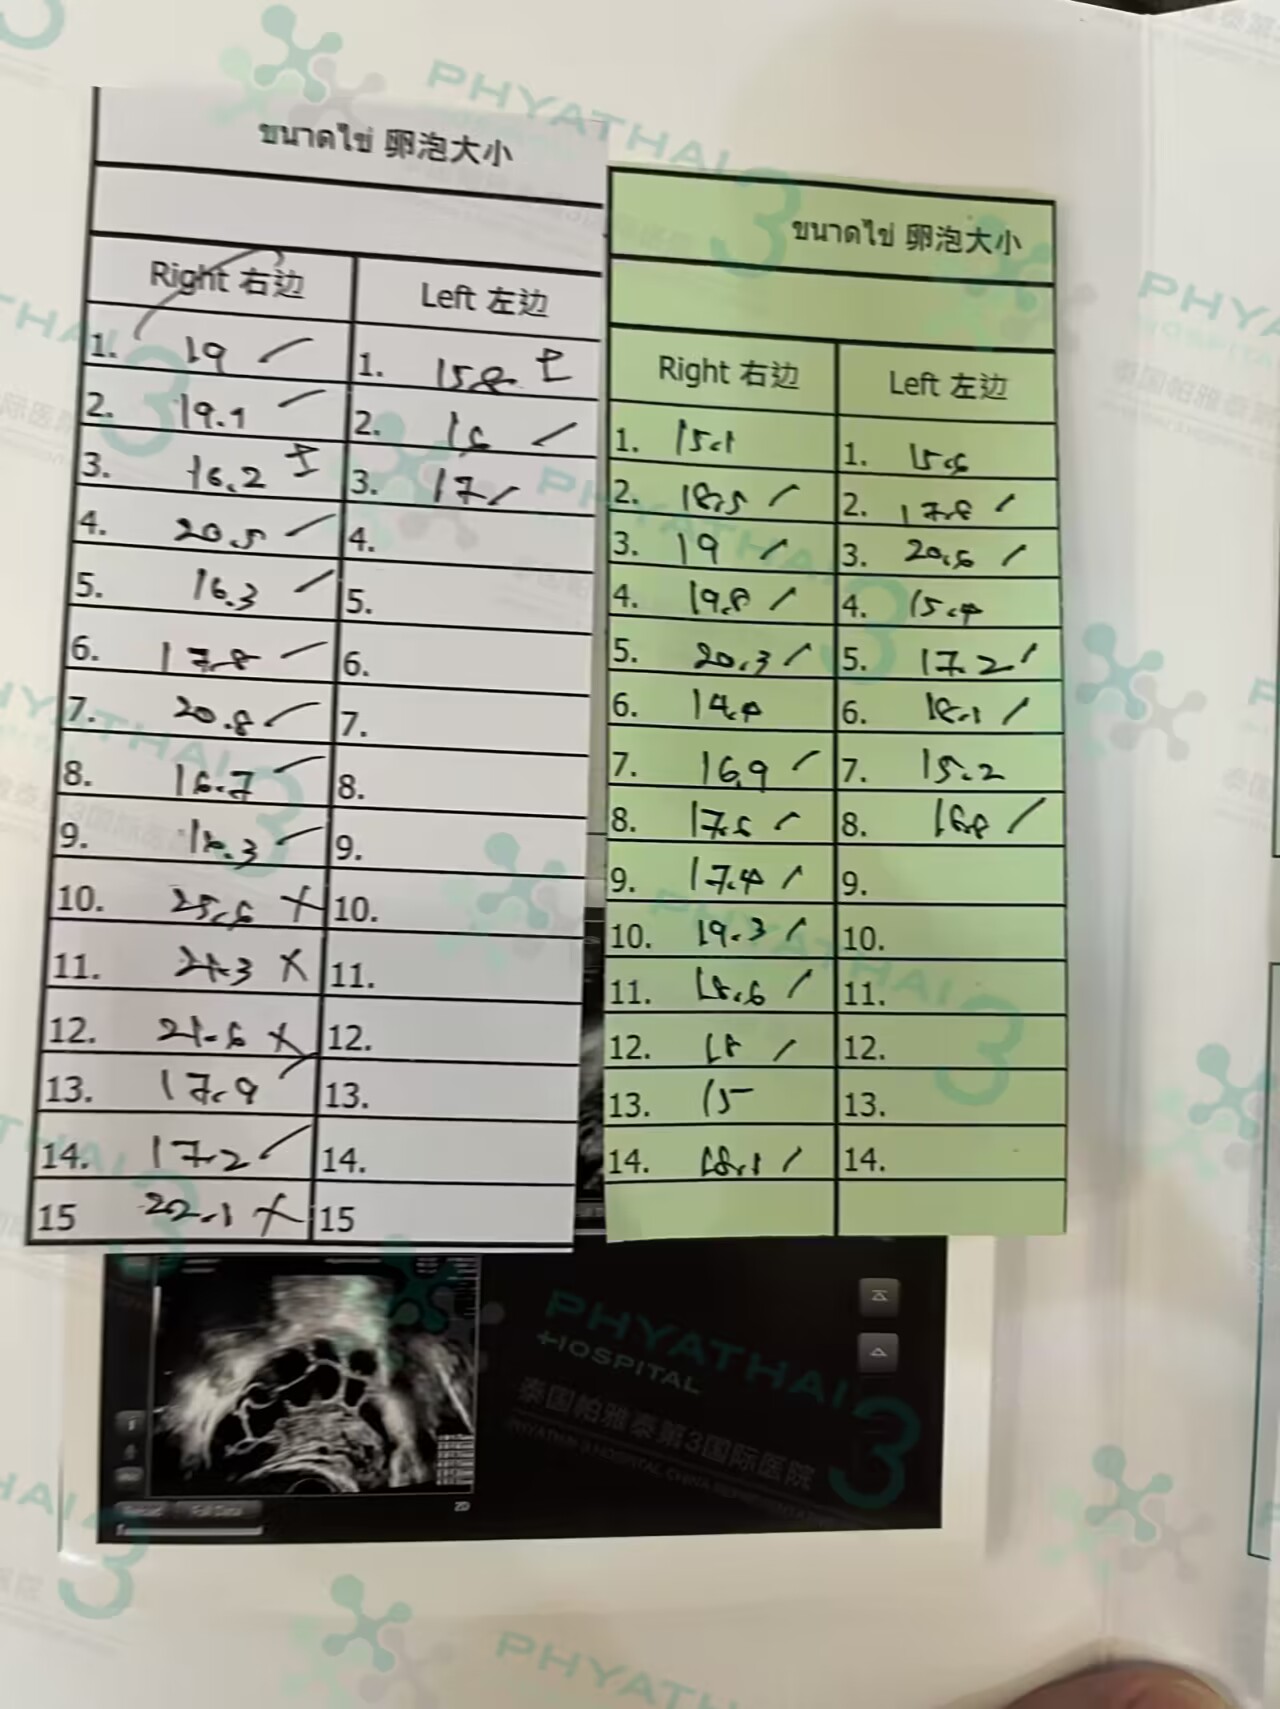 ขนาดไข่ 卵泡大小
Right 右边 Left 左边
1. 19 1. 15.8 ±
2. 19.1 2. 16
3. 16.2 ± 3. 17
4. 20.5 4.
5. 16.3 5.
6. 17.8 6.
7. 20.8 7.
8. 16.7 8.
9. 9.
10. 25.6 X 10.
11. X 11.
12. 21.6 X 12.
13. 17.9 13.
14. 17.2 14.
15 22.1 X 15
ขนาดไข่ 卵泡大小
Right 右边 Left 左边
1. 15.1 1. 15.6
2. 18.5 2. 17.8
3. 19 3. 20.6
4. 19.8 4. 15.4
5. 20.3 5. 17.2
6. 14.4 6. 18.1
7. 16.9 7. 15.2
8. 17.6 8. 16.8
9. 17.4 9.
10. 19.3 10.
11. 18.6 11.
12. 18 12.
13. 15 13.
14. 18.1 14.
2D
PHYATHAI 3
HOSPITAL
泰国帕雅泰第3国际医院